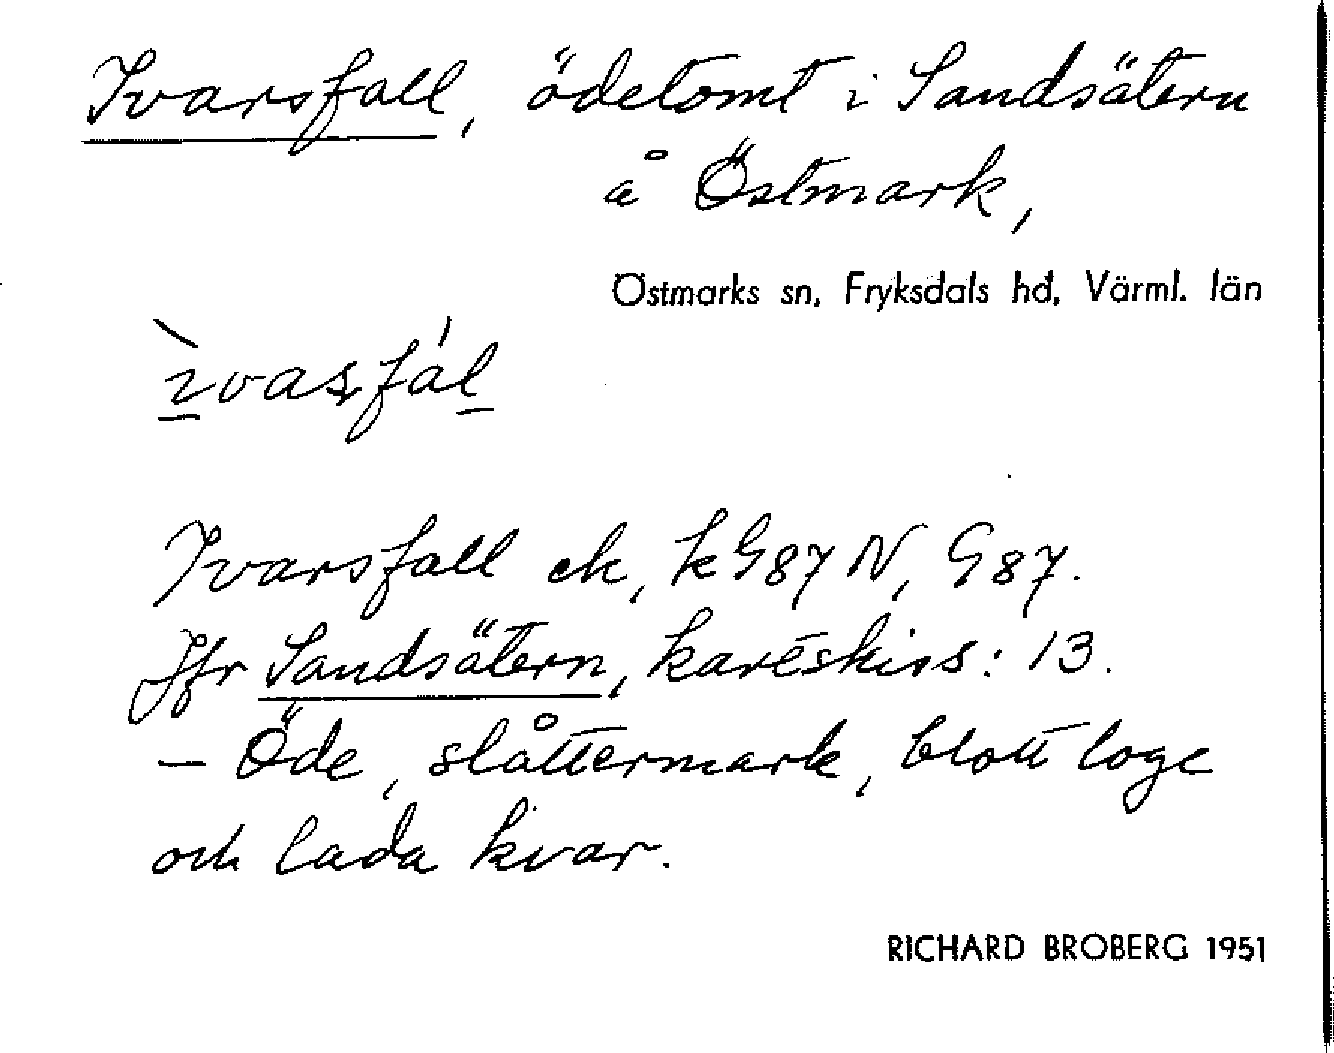 Ivarsfall, ödetomt i Sandsätern
å Östmark,
Östmarks sn, Fryksdals hd, Värml. län
ìvasfál
Ivarsfall ek, kG87N, G87.
Jfr Sandsätern, kartskiss: 13.
– Öde, slåttermark, blott loge
och lada kvar.
RICHARD BROBERG 1951